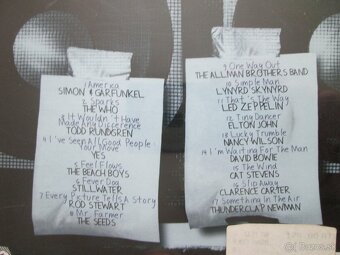 1 America
SIMON & GARFUNKEL
2 Sparks
THE WHO
3 It Wouldn't Have
Made Any Difference
TODD RUNDGREN
4 I've Seen All Good People:
Your Move
YES
5 Feel Flows
THE BEACH BOYS
6 Fever Dog
STILLWATER
7 Every Picture Tells A Story
ROD STEWART
8 Mr. Farmer
THE SEEDS
9 One Way Out
THE ALLMAN BROTHERS BAND
10 Simple Man
LYNYRD SKYNYRD
11 That's The Way
LED ZEPPELIN
12 Tiny Dancer
ELTON JOHN
13 Lucky Trumble
NANCY WILSON
14 I'm Waiting For The Man
DAVID BOWIE
15 The Wind
CAT STEVENS
16 Slip Away
CLARENCE CARTER
17 Something In The Air
THUNDERCLAP NEWMAN
Bazos.sk